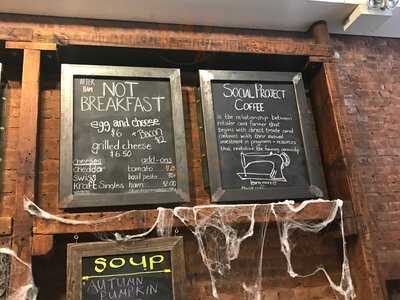 AFTER
11AM
NOT
BREAKFAST
egg and cheese
$6 + Bacon
$2
grilled cheese
$6.50
cheeses
cheddar
swiss
Kraft Singles
add-ons
tomato
basil pesto
ham
SOCIAL PROJECT
COFFEE
is the relationship between
roaster and farmer that
begins with direct trade and
continues with their mutual
investment in programs + resources
that revitalize the farming community
SOUP
AUTUMN
PUMPKIN